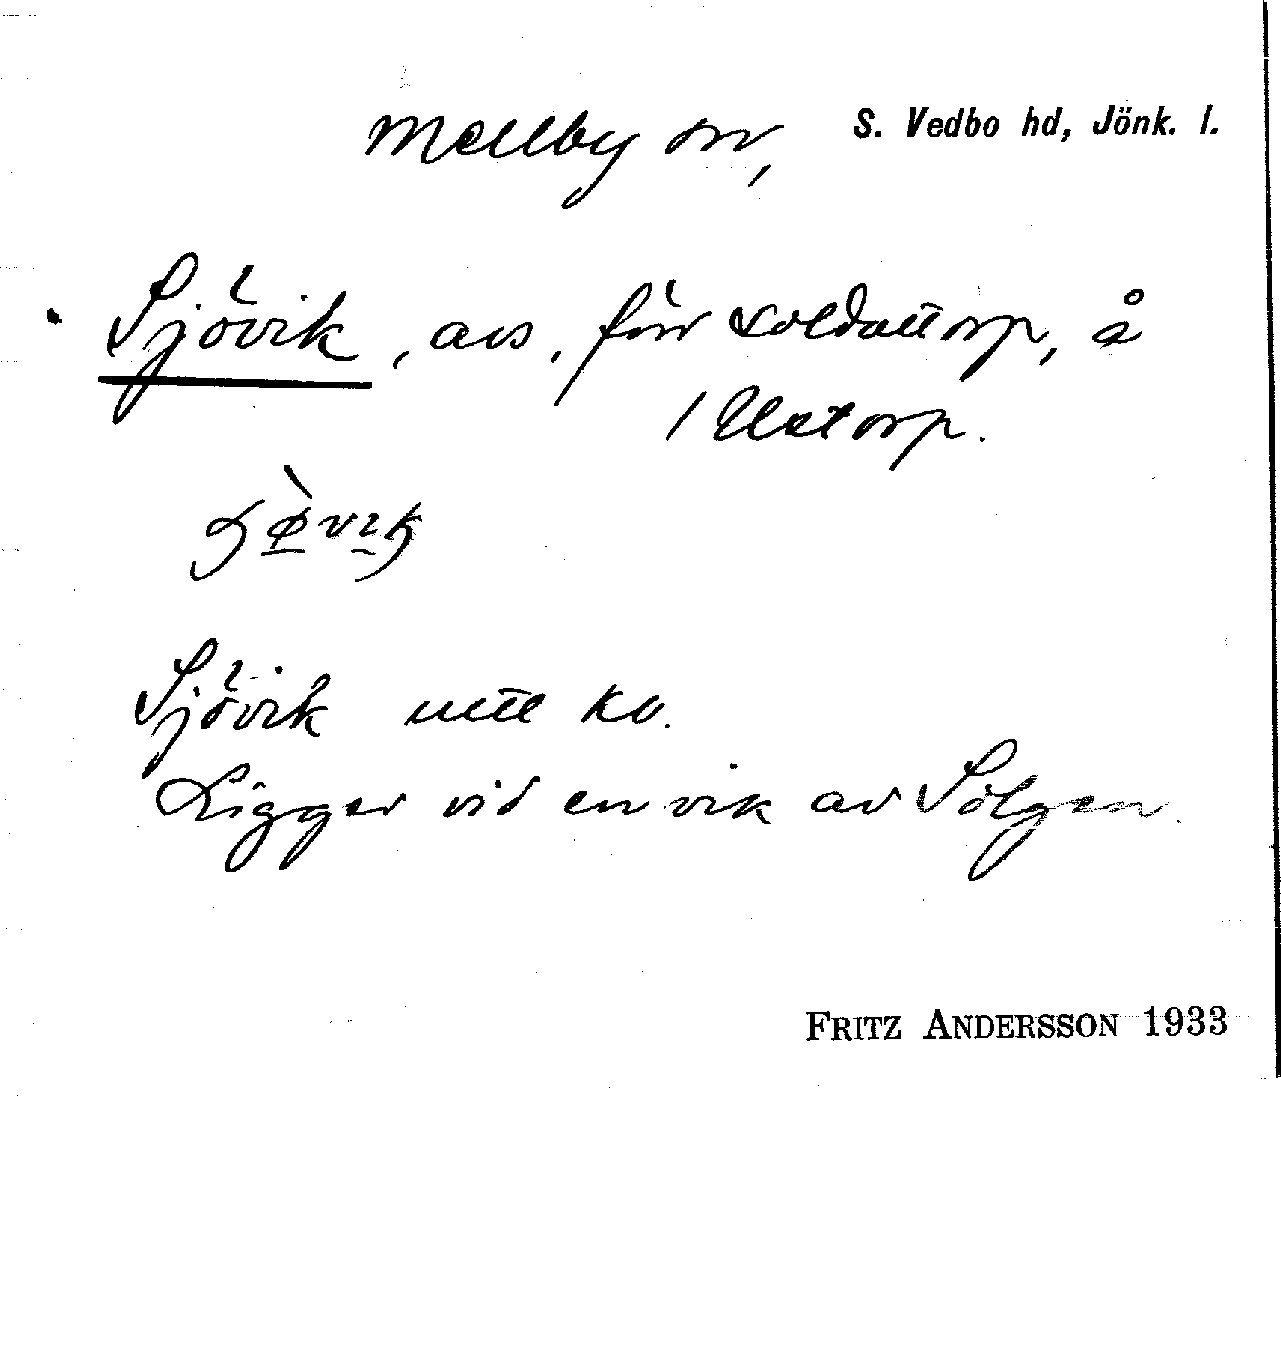 Mellby sn, S. Vedbo hd, Jönk. l.
Sjövik, avs, förr soldattorp, å
1 Ustorp.
Sjövik utt ko.
Ligger vid en vik av Solgen.
FRITZ ANDERSSON 1933